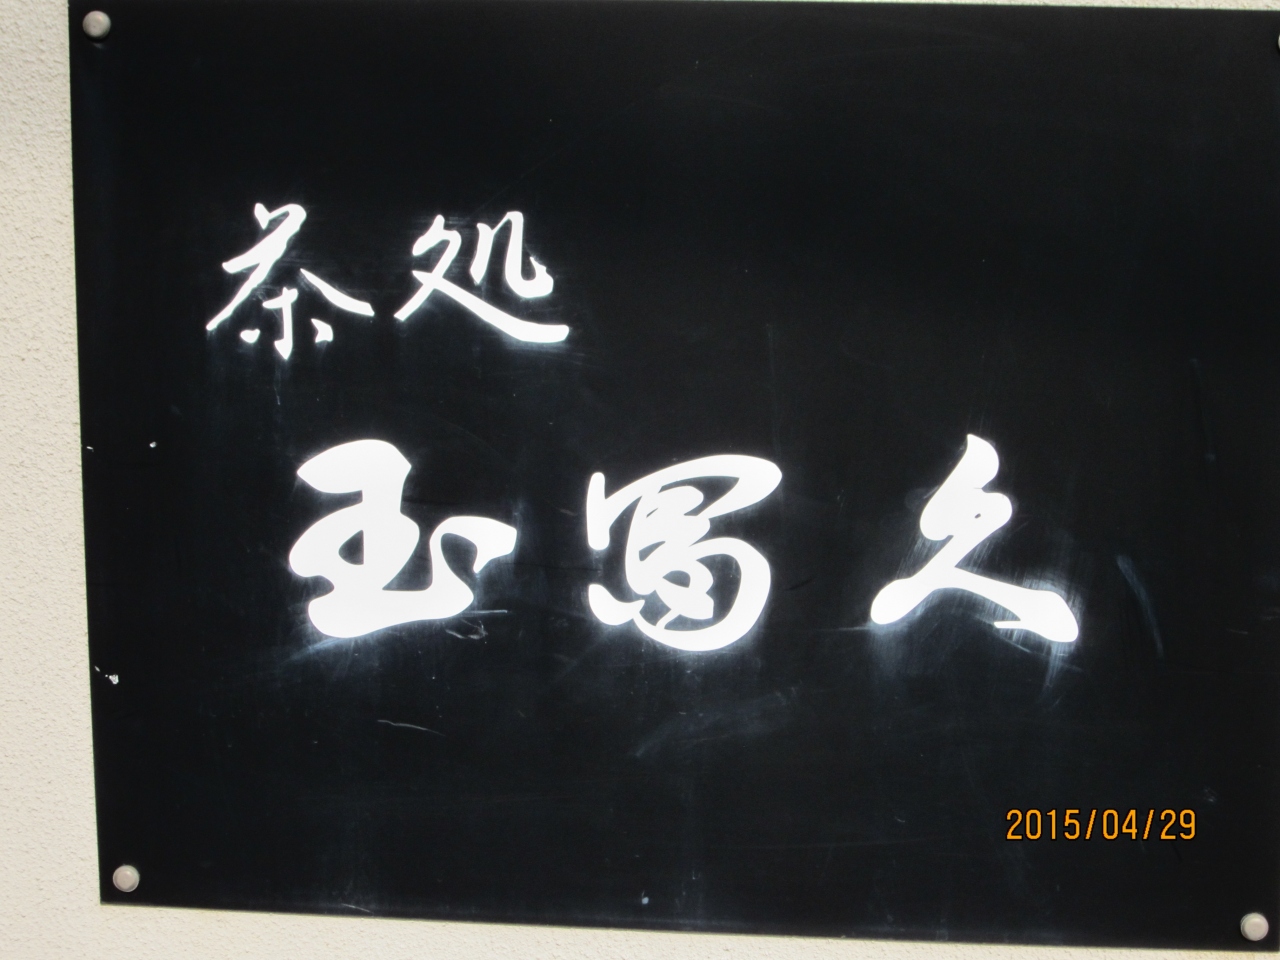 茶処
玉冩久
2015/04/29